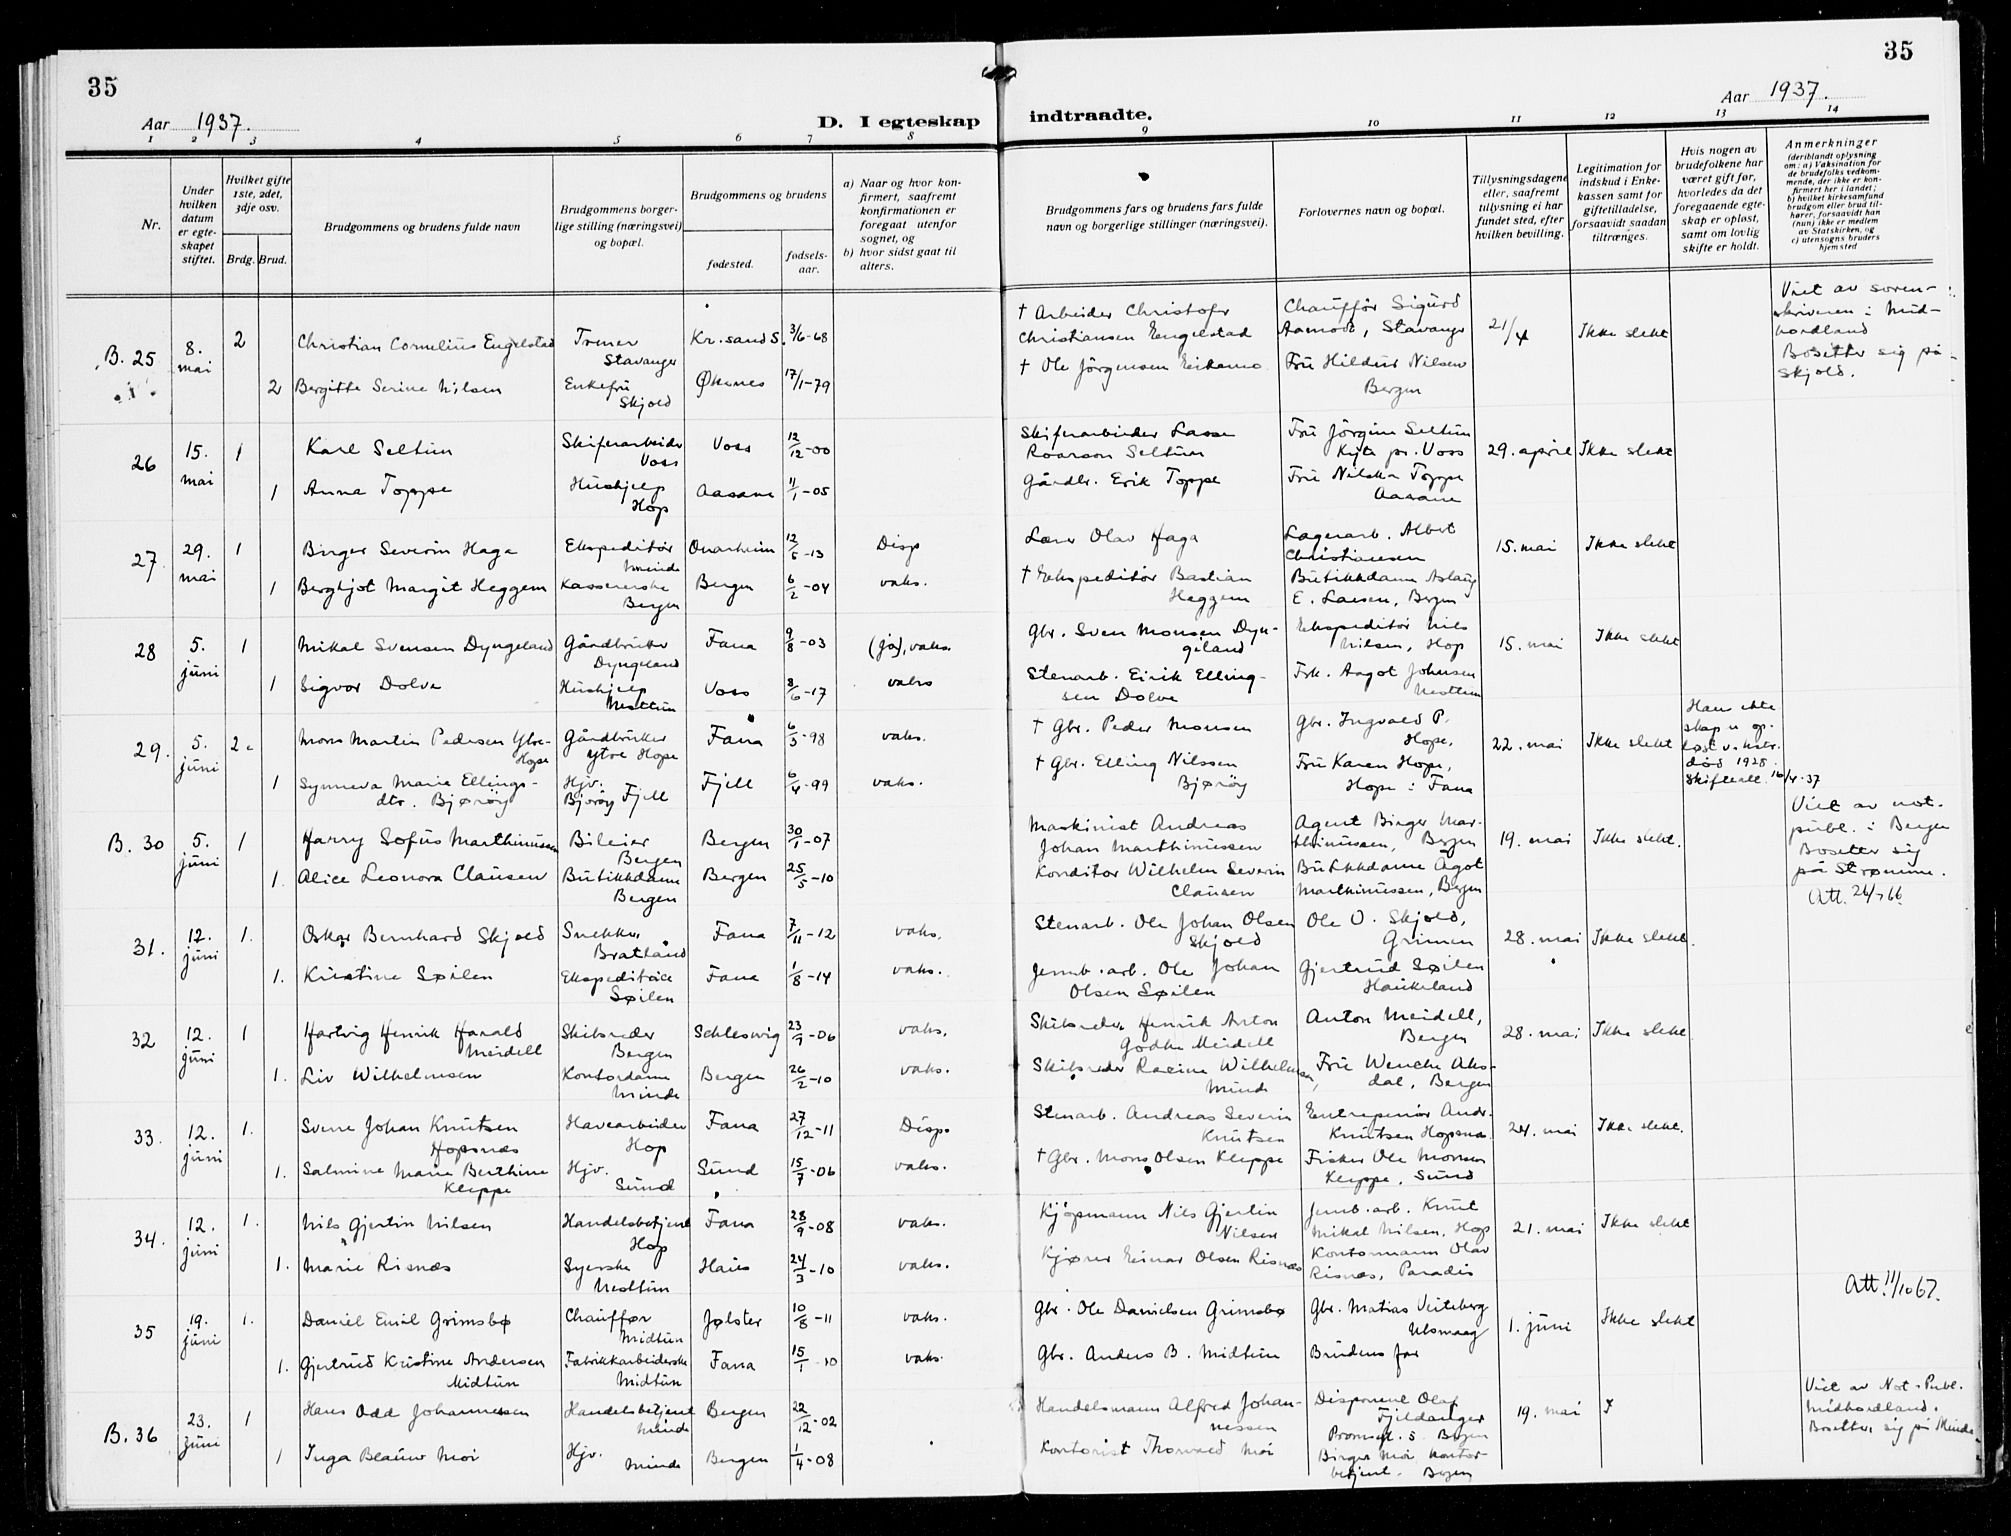 35
35
Aar 1937.
D. I egteskap
indtraadte.
Aar 1937.
1 2 3 4 5 6 7 8 9 10 11 12 13 14
Nr.
Under hvilken datum er egteskapet stiftet.
Hvilket gifte 1ste, 2det, 3dje osv.
Brdg. Brud.
Brudgommens og brudens fulde navn
Brudgommens borgerlige stilling (næringsvei) og bopæl.
Brudgommens og brudens
fødested.
fødselsaar.
a) Naar og hvor konfirmert, saafremt konfirmationen er foregaat utenfor sognet, og
b) hvor sidst gaat til alters.
Brudgommens fars og brudens fars fulde navn og borgerlige stillinger (næringsvei).
Forlovernes navn og bopæl.
Tillysningsdagene eller, saafremt tillysning ei har fundet sted, efter hvilken bevilling.
Legitimation for indskud i Enkekassen samt for giftetilladelse, forsaavidt saadan tiltrænges.
Hvis nogen av brudefolkene har været gift før, hvorledes da det foregaaende egteskap er opløst, samt om lovlig skifte er holdt.
Anmerkninger
(deriblandt oplysning om: a) Vaksination for de brudefolks vedkommende, der ikke er konfirmert her i landet; b) hvilket kirkesamfund brudgom eller brud tilhører, forsaavidt han (hun) ikke er medlem av Statskirken, og c) utensogns bruders hjemsted
B. 25 8. mai 2 Christian Cornelius Engelstad Stavanger Kr.sand S. 3/6-68 † Arbeider Christofr Christiansen Engelstad Chauffør Sigurd Aamodt, Stavanger 21/4 Ikke slekt Viet av sorenskriveren i Midhordland Bosetter sig på Skjold.
2 Bergitte Serine Nilsen Enkefru Skjold Øksnes 17/1-79 † Ole Jörgensen Fru Hildur Nilsen Bergen
26 15. mai 1 Karl Seltun Skiferarbeider Voss Voss 12/12-00 Skiferarbeider Lasse Roarson Seltun Fru Jörgine Seltun Kyte pr. Voss 29. april Ikke slekt
1 Anna Toppe Hushjelp Hop Aasane 11/1-05 Gårdbr. Erik Toppe Fru Toppe Aasane
27 29. mai 1 Birger Severin Haga Ekspeditør Minde Onarheim 12/6-13 Disp Lærer Olav Haga Lagerarb. Albert Christiansen 15. mai Ikke slekt
1 Bergljot Margit Heggem Kassererske Bergen Bergen 6/2-04 vaks. † Ekspeditør Bastian Heggem Butikkdame Aslaug E. Larsen, Bergen
28 5. juni 1 Mikal Svensen Dyngeland Gårdbruker Dyngeland Fana 9/8-03 (ja), vaks. Gbr. Sven Monsen Dyngeland Ekspeditør Nils Nilsen, Hop 15. mai Ikke slekt
1 Sigvor Dolve Hushjelp Nesttun Voss 8/6-17 vaks Stenarb. Eirik Ellingsen Dolve Frk. Aagot Johnsen Nesttun
29. 5. juni 2 Mons Martin Pedersen Ytre-Hope Gårdbruker Ytre Hope Fana 6/3-98 vaks. † Gbr. Peder Monsen Gbr. Ingvald P. Hope, 22. mai Ikke slekt Hans ekteskap er opløst v. død 1928. Skifteatt. 16/4-37
1 Synneva Marie Ellingsdtr. Bjørøy Hjv. Bjørøy Fjell Fjell 6/4-99 vaks. † Gbr. Elling Nilssen Bjørøy Fru Karen Hope, Hope i Fana
B. 30 5. juni 1 Harry Sofus Marthinussen Bileier Bergen Bergen 30/1-07 Maskinist Andreas Johan Marthinussen Agent Birger Marthinussen, Bergen 19. mai Ikke slekt. Viet av not. publ. i Bergen Bosetter sig på Strømme. Att. 26/7 66
1. Alice Leonora Clausen Butikkdame Bergen Bergen 25/5-10 Konditor Wilhelm Severin Clausen Butikkdame Ågot Marthinussen, Bergen
31. 12. juni 1. Oskar Bernhard Skjold Snekker Bratland Fana 7/11-12 vaks. Stenarb. Ole Johan Olsen Skjold Ole O. Skjold, Grimen 28. mai Ikke slekt.
1. Kristine Søilen Ekspeditrice Søilen Fana 1/8-14 vaks. Jernb.arb. Ole Johan Olsen Søilen Gjertrud Søilen Haukeland
32 12. juni 1 Hartvig Henrik Harald Meidell Skibsreder Bergen Schleswig 23/7-06 vaks. Skibsreder Henrik Anton Godtke Meidell Anton Meidell, Bergen 28. mai Ikke slekt
1. Liv Wilhelmsen Kontordame Minde Bergen 26/2-10 vaks. Skibsreder Racine Wilhelmsen, Minde Fru Wenche Aksdal, Bergen
33. 12. juni 1. Sverre Johan Knutsen Hopsnæs Havearbeider Hop Fana 27/12-11 Disp. Stenarb. Andreas Severin Knutsen Entreprenør Andr. Knutsen Hopsnæs 24. mai Ikke slekt.
1. Salmine Marie Berthine Kleppe Hjv. Sund Sund 15/7-06 vaks. † Gbr. Mons Olsen Kleppe Fisker Ole Monsen Kleppe, Sund
34. 12. juni 1. Nils Gjertin Nilsen Handelsbetjent Hop Fana 28/9-08 vaks. Kjøpmann Nils Gjertin Nilsen Jernb.arb. Knut Mikal Nilsen, Hop 21. mai Ikke slekt
1. Marie Risnæs Syerske Nesttun Haus 24/3-10 vaks. Kjører Einar Olsen Risnæs Kontormann Olav Risnæs, Paradis
35 19. juni 1. Daniel Emil Grimsbø Chauffør Midtun Jølster 10/8-11 vaks. Gbr. Ole Danielsen Grimsbø Gbr. Matias Veiteberg 1. juni Ikke slekt Att. 11/10 67.
1. Gjertrud Kristine Andersen Midtun Fabrikkarbeiderske Midtun Fana 15/1-10 vaks. Gbr. Anders B. Midtun Brudens far
B. 36 23. juni 1 Hans Odd Johannessen Handelsbetjent Minde Bergen 22/12-02 Handelsmann Alfred Johannessen Disponent Olaf Fjeldanger Bergen 19. mai Viet av Not.Publ. Midhordland. Bosetter sig på Minde
1 Inga Blauw Moi Hjv. Minde Bergen 1/4-08 Kontorist Thorvald Moi Birger Moi, kontorbetjent. Bergen